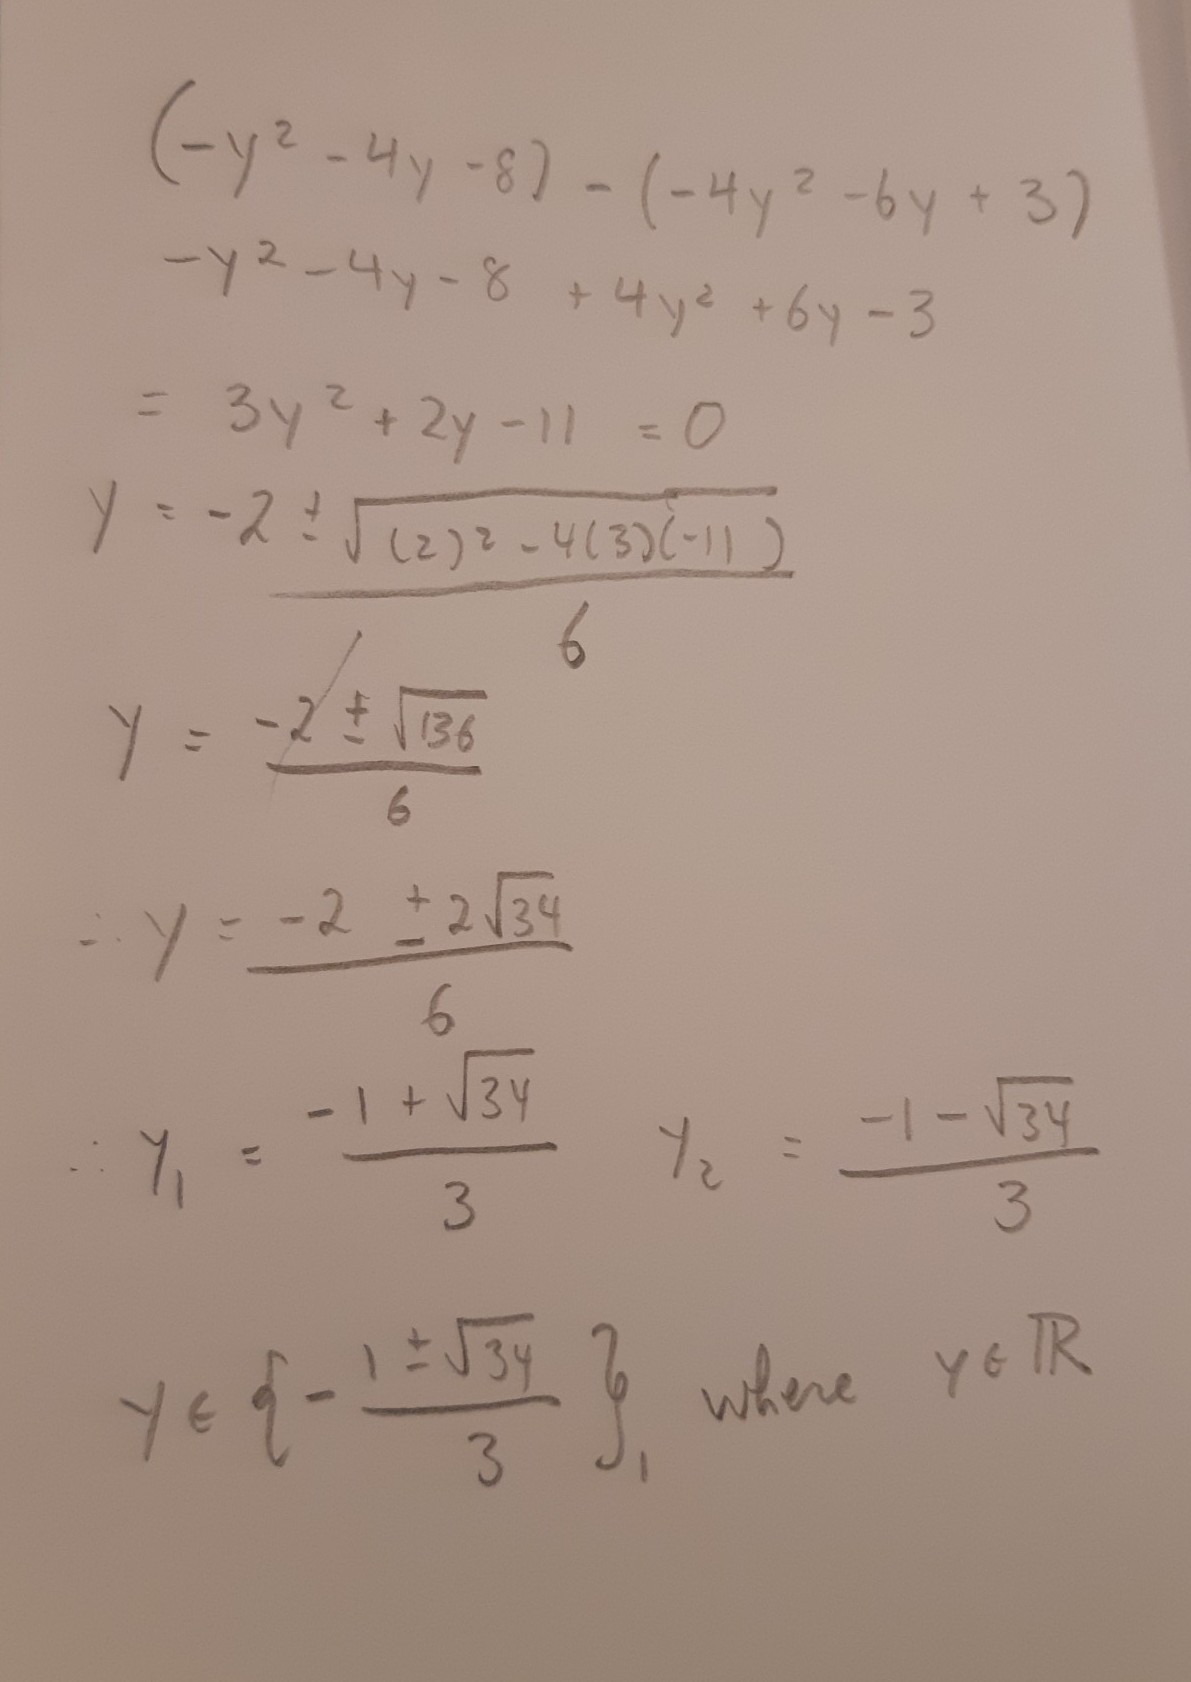 (-y² - 4y - 8) - (-4y² - 6y + 3)
-y² - 4y - 8 + 4y² + 6y - 3
= 3y² + 2y - 11 = 0
y = -2 ± √((2)² - 4(3)(-11)) / 6
y = (-2 ± √136) / 6
∴ y = (-2 ± 2√34) / 6
∴ y₁ = (-1 + √34) / 3 y₂ = (-1 - √34) / 3
y ∈ { - (1 ± √34) / 3 }, where y ∈ ℝ